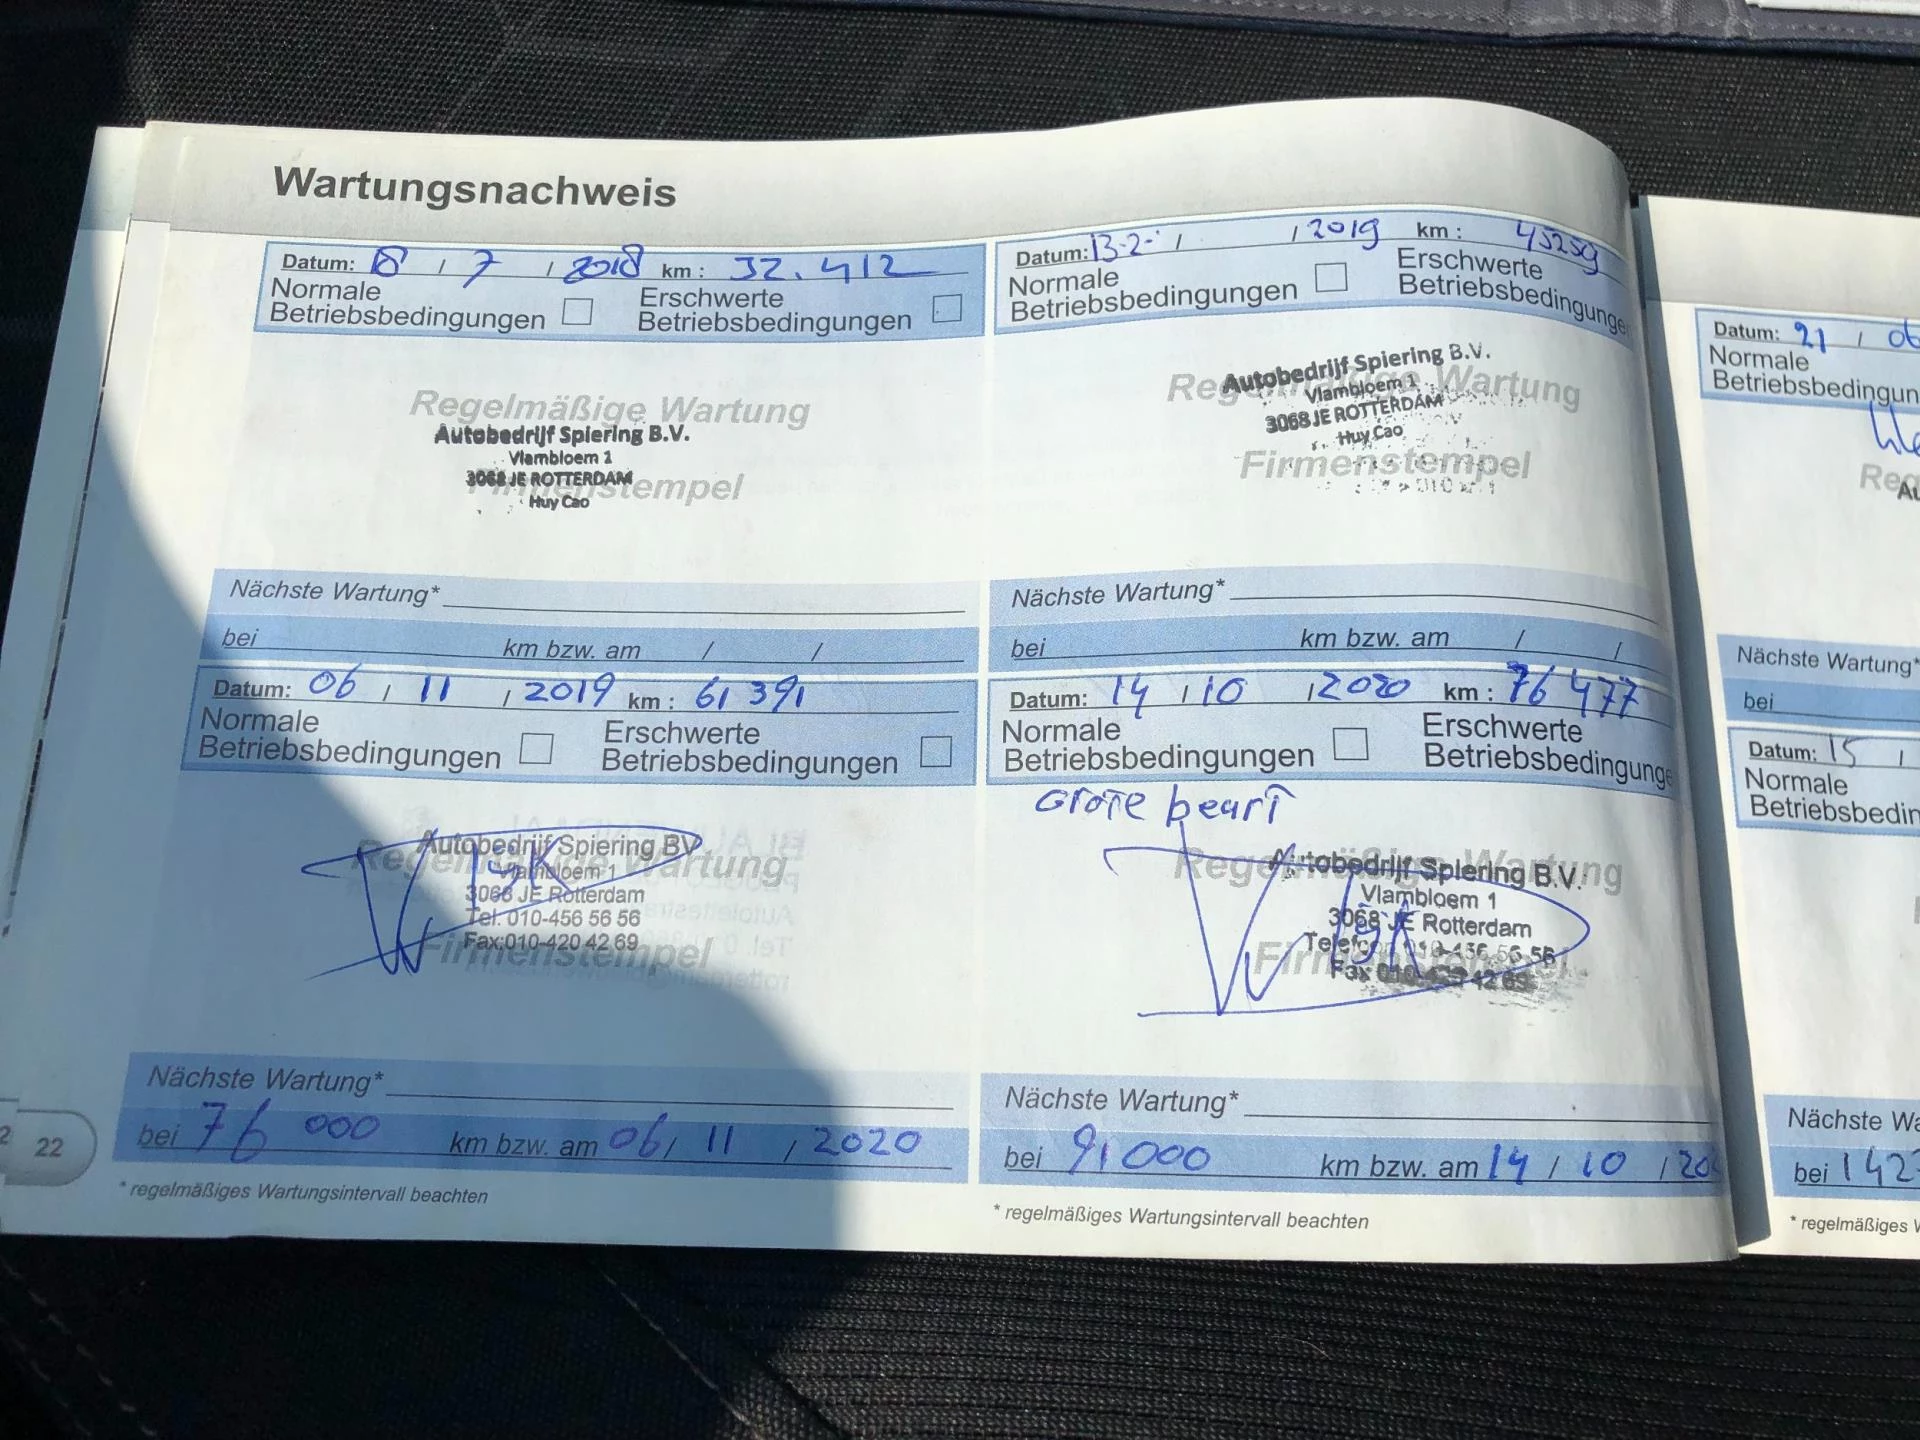 Wartungsnachweis
Datum: 8 / 7 / 2018 km : 32.412
Normale
Betriebsbedingungen
Erschwerte
Betriebsbedingungen
Regelmäßige Wartung
Autobedrijf Spiering B.V.
Vlambloem 1
3068 JE ROTTERDAM
Firmenstempel
Huy Cao
Nächste Wartung*
bei km bzw. am / /
Datum: 13-2- / / 2019 km : 45259
Normale
Betriebsbedingungen
Erschwerte
Betriebsbedingunge
Regelmäßige Wartung
Autobedrijf Spiering B.V.
Vlambloem 1
3068 JE ROTTERDAM
Huy Cao
Firmenstempel
Nächste Wartung*
bei km bzw. am / /
Datum: 06 / 11 / 2019 km : 61 391
Normale
Betriebsbedingungen
Erschwerte
Betriebsbedingungen
Autobedrijf Spiering BV
Regelmäßige Wartung
Vlambloem 1
3068 JE Rotterdam
Tel. 010-456 56 56
Fax:010-420 42 69
Firmenstempel
Nächste Wartung*
bei 76 000 km bzw. am 06 / 11 / 2020
* regelmäßiges Wartungsintervall beachten
Datum: 14 / 10 / 2020 km : 76 477
Normale
Betriebsbedingungen
Erschwerte
Betriebsbedingunge
Grote beurt
Regelmäßige Wartung
Autobedrijf Spiering B.V.
Vlambloem 1
3068 JE Rotterdam
Telefoon 010-456 56 56
Firmenstempel
Nächste Wartung*
bei 91 000 km bzw. am 14 / 10 / 20
* regelmäßiges Wartungsintervall beachten
22
Datum: 21 / 06
Normale
Betriebsbedingun
Reg
Au
Nächste Wartung*
bei
Datum: 15 /
Normale
Betriebsbedin
Nächste Wa
bei 142
* regelmäßiges